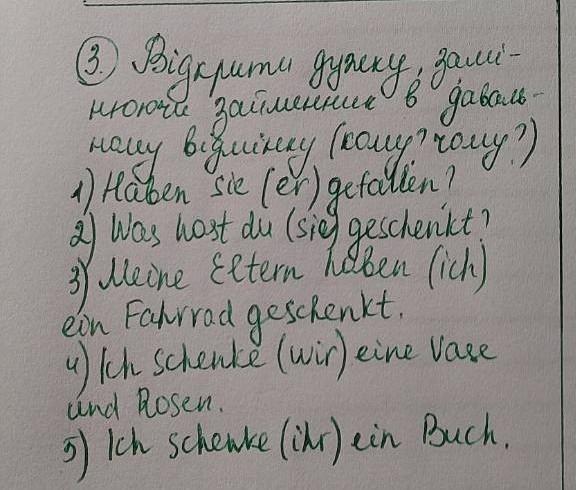 3. Відкрити дужку, замі-
нюючи займенник в даваль-
ному відмінку (кому? чому?)
1) Haben sie (er) gefallen?
2) Was hast du (sie) geschenkt?
3) Meine Eltern haben (ich)
ein Fahrrad geschenkt.
4) Ich schenke (wir) eine Vase
und Rosen.
5) Ich schenke (ihr) ein Buch.